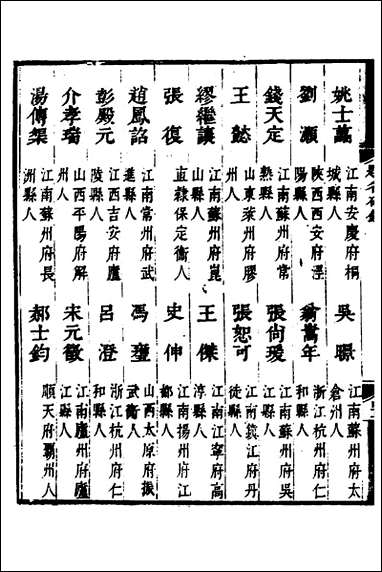 姚士藟 江南安慶府桐城縣人 吳暻 江南蘇州府太倉州人
劉灝 陝西西安府涇陽縣人 翁嵩年 浙江杭州府仁和縣人
錢天定 江南蘇州府常熟縣人 張尚瑗 江南蘇州府吳江縣人
王懿 山東萊州府膠州人 張恕可 江南鎮江府丹徒縣人
繆繼讓 江南蘇州府崑山縣人 王傑 江南江寧府高淳縣人
張復 直隸保定衛人 史伸 江南揚州府江都縣人
趙鳳詔 江南常州府武進縣人 馮壅 山西太原府振武衛人
彭殿元 江西吉安府廬陵縣人 呂澄 浙江杭州府仁和縣人
介孝瑹 山西平陽府解州人 宋元徵 江南廬州府廬江縣人
湯傳榘 江南蘇州府長洲縣人 郝士鈞 順天府霸州人